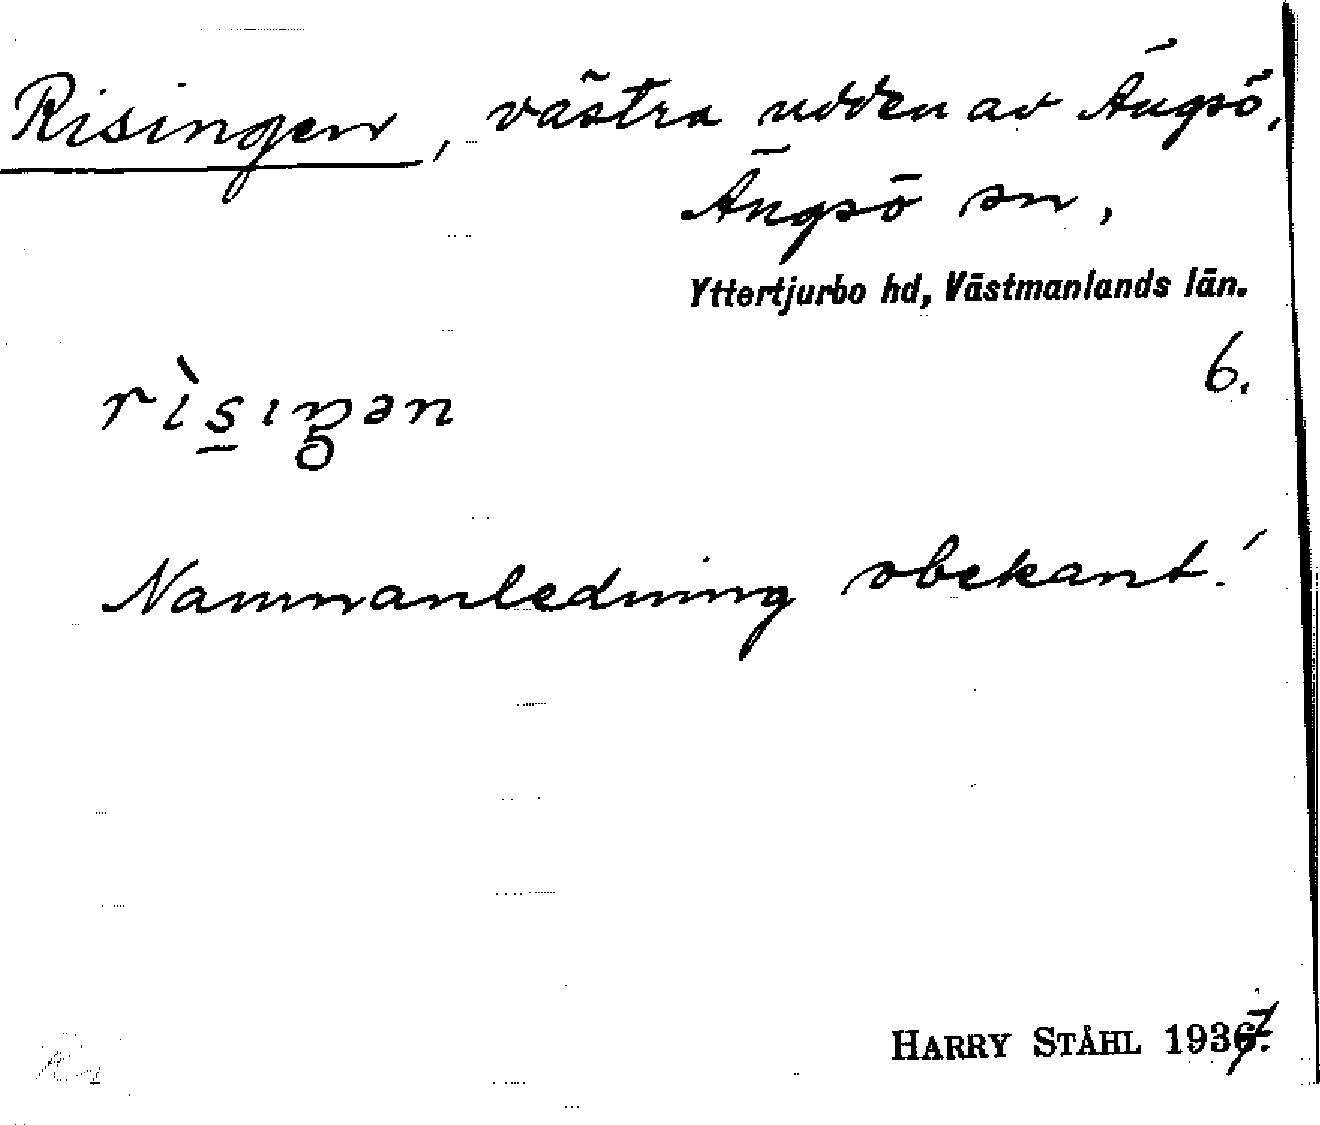 Risingen, västra udden av Ängsö,
Ängsö sn,
Yttertjurbo hd, Västmanlands län.
6.
Namnanledning obekant!
HARRY STÅHL 1937.